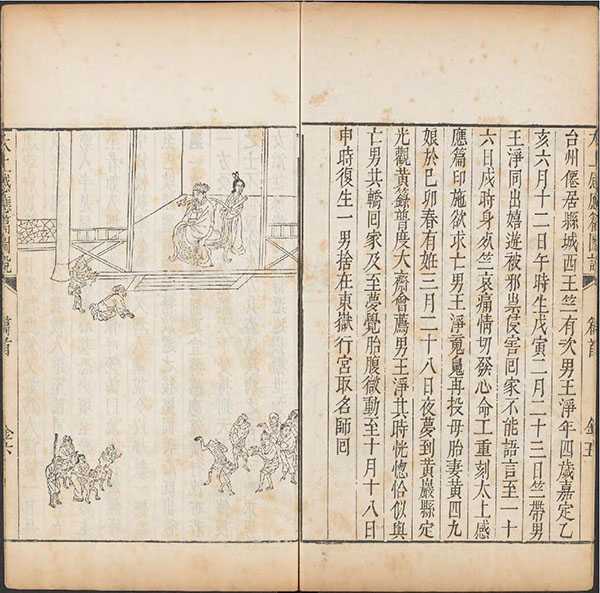 太上感應篇圖說 篇首 金五
台州僊居縣城西王竺有次男王淨年四歲嘉定乙
亥六月十二日午時生戊寅二月二十三日竺帶男
王淨同出嬉遊被邪祟侵害囘家不能語言至一十
六日戌時身故竺哀痛情切發心命工重刻太上感
應篇印施欲求亡男王淨䰟再投母胎妻黃四九
娘於己卯春有姙三月二十八日夜夢到黃巖縣定
光觀黃籙普度大齋會薦男王淨其時恍惚恰似與
亡男共轎囘家及至夢覺胎腹微動至十月十八日
申時復生一男捨在東嶽行宮取名師囘
太上感應篇圖說 篇首 金六